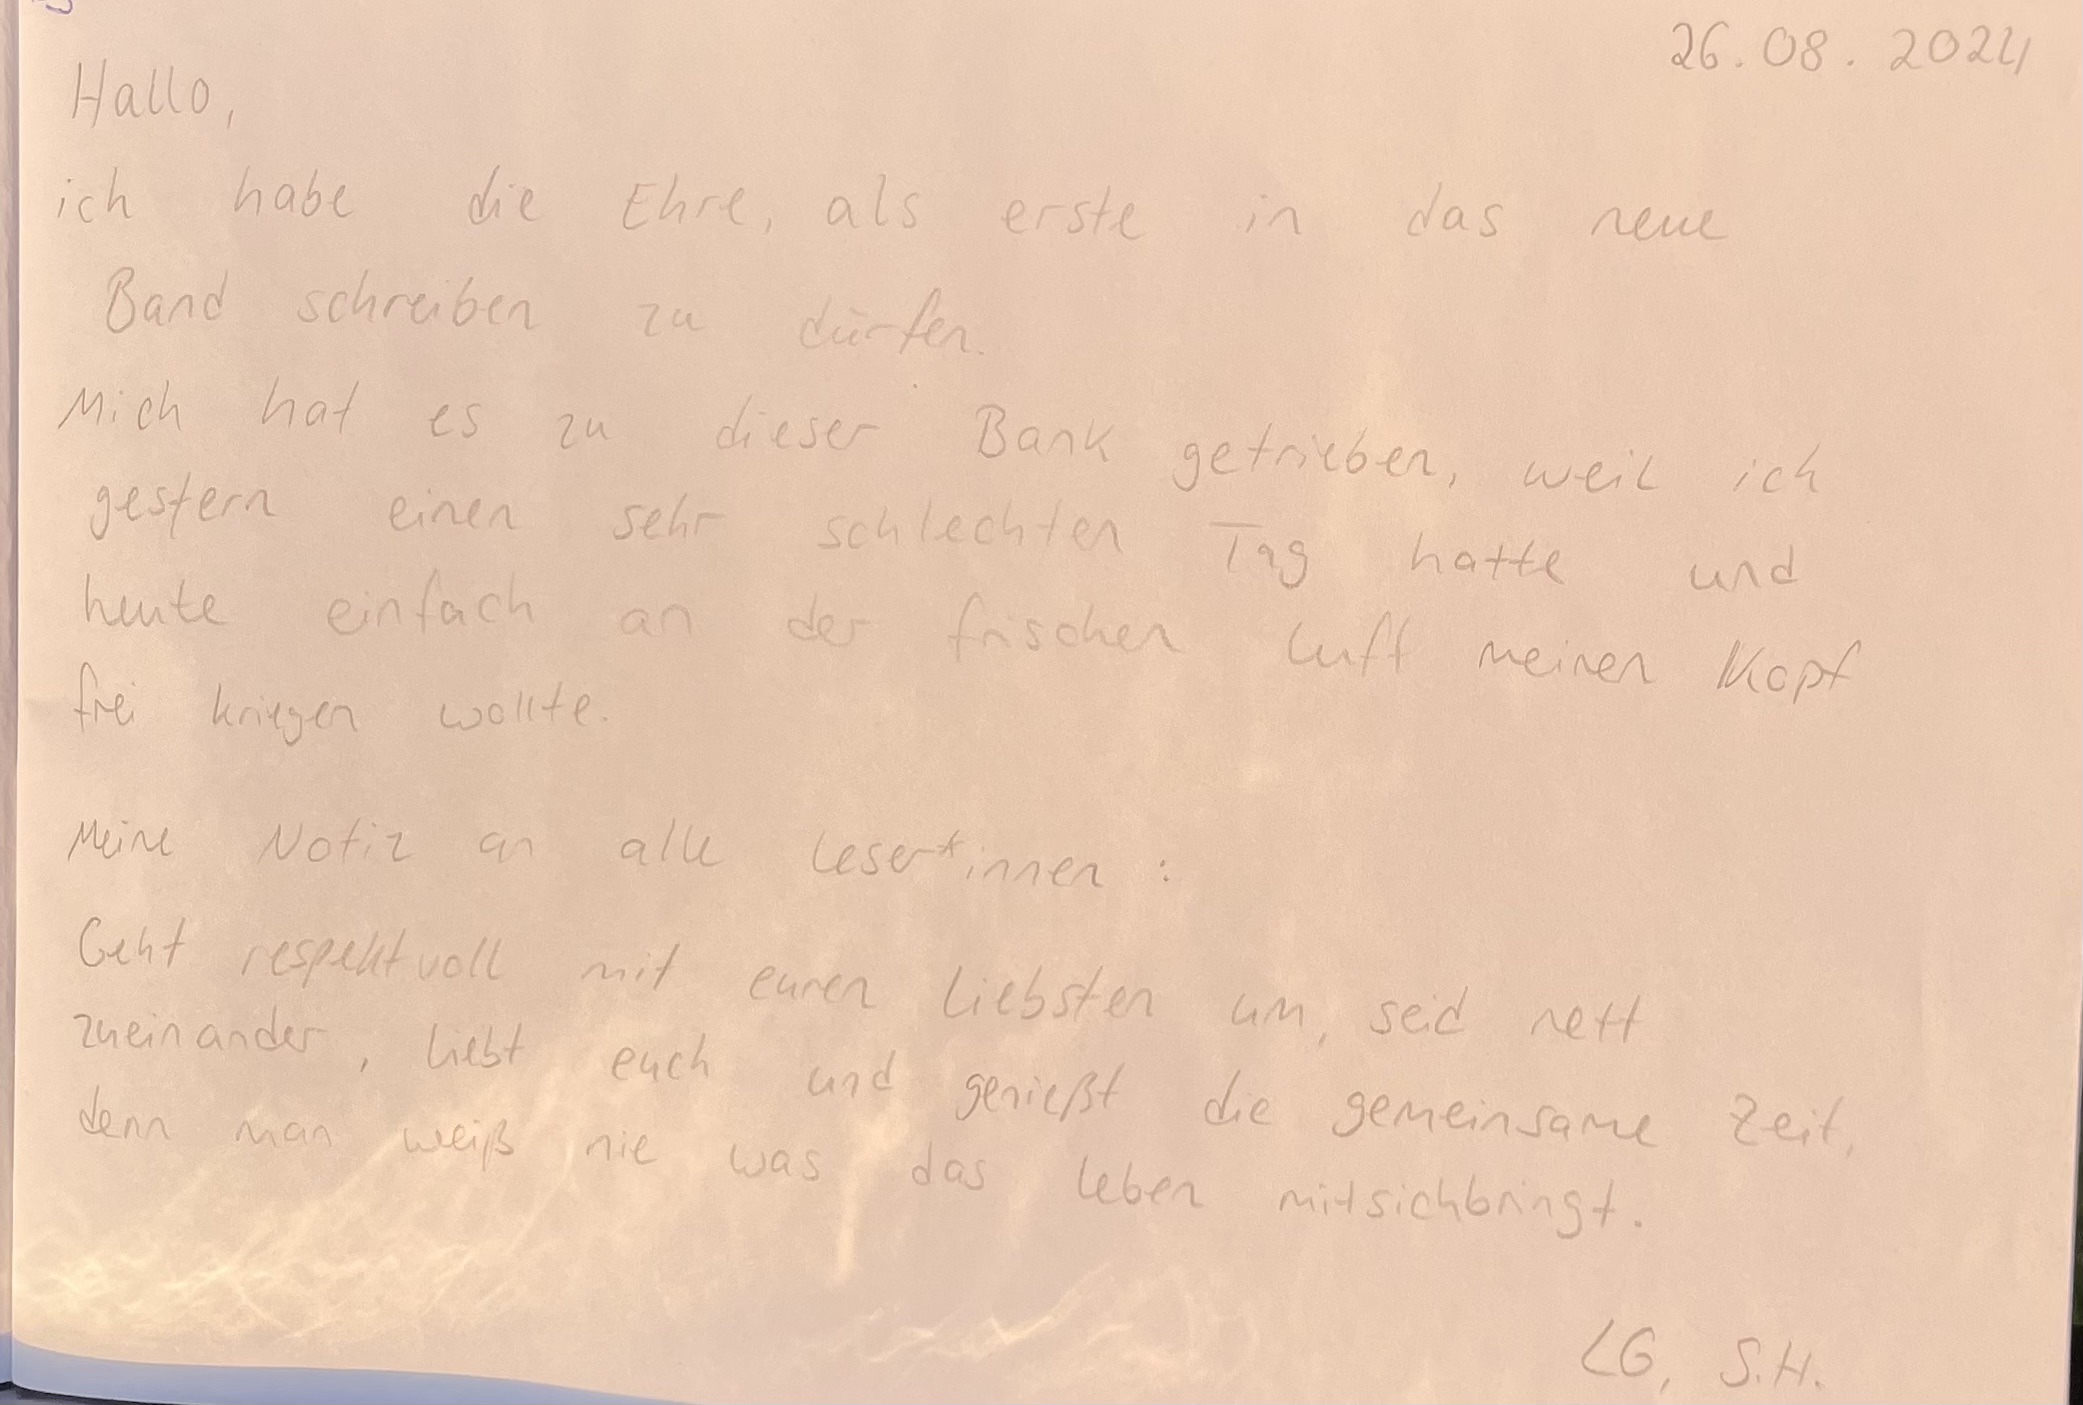 26.08.2024
Hallo,
ich habe die Ehre, als erste in das neue
Band schreiben zu dürfen.
Mich hat es zu dieser Bank getrieben, weil ich
gestern einen sehr schlechten Tag hatte und
heute einfach an der frischen Luft meinen Kopf
frei kriegen wollte.
Meine Notiz an alle Leser*innen :
Geht respektvoll mit euren Liebsten um, seid nett
zueinander, liebt euch und genießt die gemeinsame Zeit,
denn man weiß nie was das Leben mitsichbringt.
LG, S.H.